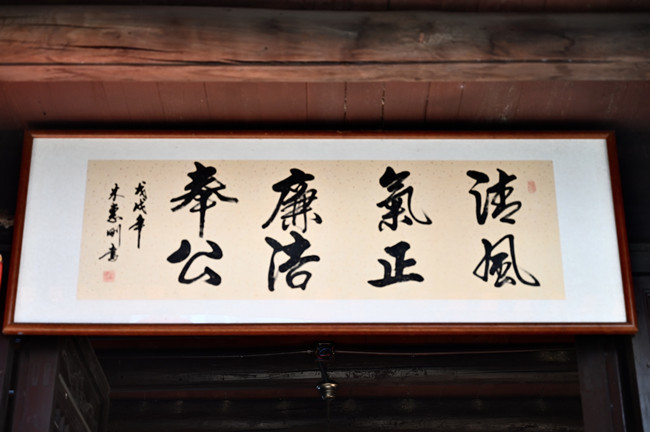 清風
氣正
廉洁
奉公
戊戌年
朱惠刚書